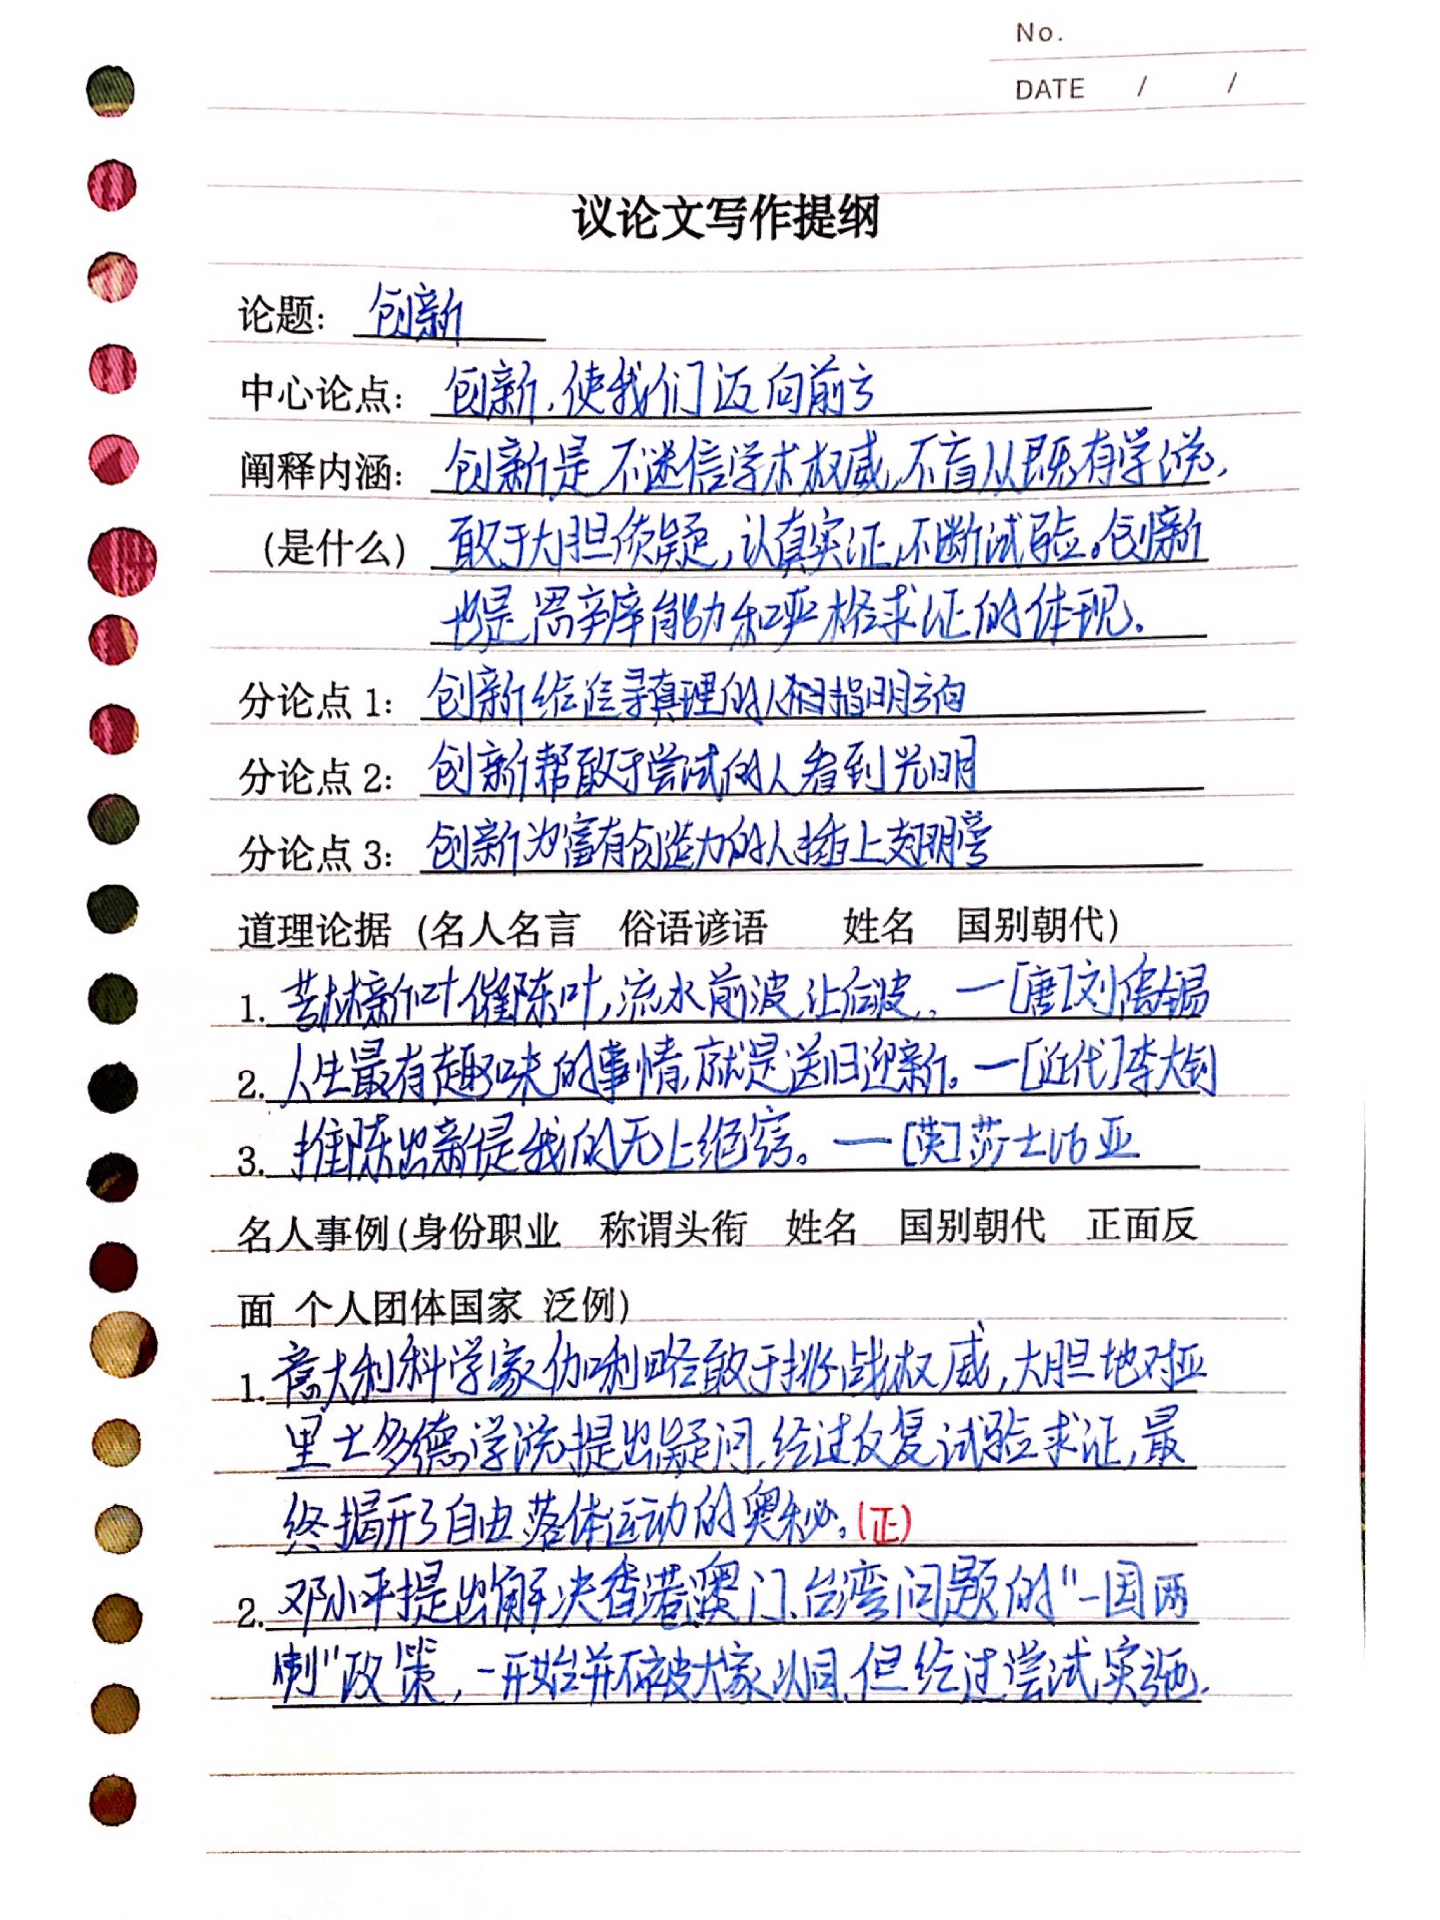 No.
DATE / /
议论文写作提纲
论题： 创新
中心论点： 创新，使我们迈向前方
阐释内涵： 创新是不迷信学术权威，不盲从既有学说，
（是什么） 敢于大胆质疑，认真实证，不断试验。创新
也是思辨能力和严格求证的体现。
分论点 1： 创新给追寻真理的人指明方向
分论点 2： 创新帮敢于尝试的人看到光明
分论点 3： 创新为富有创造力的人插上翅膀
道理论据（名人名言 俗语谚语 姓名 国别朝代）
1. 芳林新叶催陈叶，流水前波让后波。—[唐]刘禹锡
2. 人生最有趣味的事情，就是送旧迎新。—[近代]李大钊
3. 推陈出新是我的无上绝窍。—[英]莎士比亚
名人事例（身份职业 称谓头衔 姓名 国别朝代 正面反
面 个人团体国家 泛例）
1. 意大利科学家伽利略敢于挑战权威，大胆地对亚
里士多德学说提出疑问，经过反复试验求证，最
终揭开了自由落体运动的奥秘。（正）
2. 邓小平提出解决香港、澳门、台湾问题的“一国两
制”政策，一开始并不被大家认同，但经过尝试，实施，